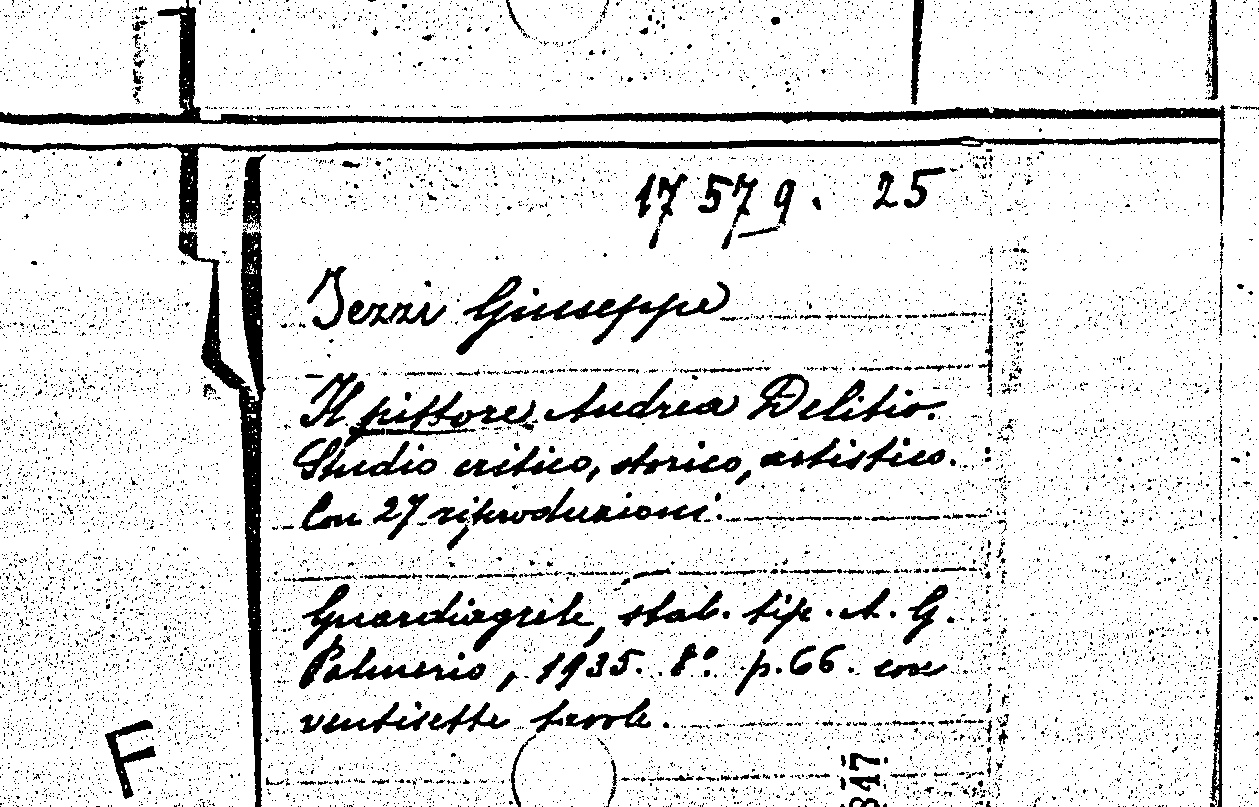 17579. 25
Iezzi Giuseppe
Il pittore Andrea Delitio.
Studio critico, storico, artistico.
Con 27 riproduzioni.
Guardiagrele, stab. tip. A. G.
Palmerio, 1935. 8° p. 66. con
ventisette tavole.
F
847